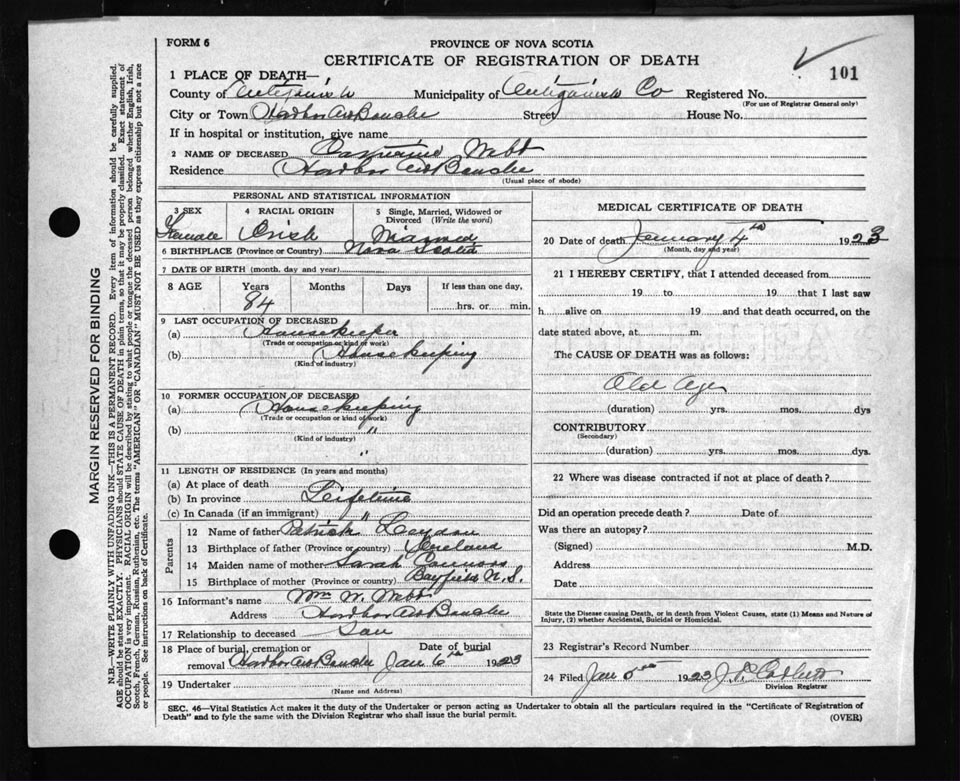 FORM 6
PROVINCE OF NOVA SCOTIA
CERTIFICATE OF REGISTRATION OF DEATH
101
1 PLACE OF DEATH—
County of Antigonish Municipality of Antigonish Co Registered No.
(For use of Registrar General only)
City or Town Harbor Au Bouche Street House No.
If in hospital or institution, give name
2 NAME OF DECEASED Catherine Webb
Residence Harbor Au Bouche
(Usual place of abode)
PERSONAL AND STATISTICAL INFORMATION
3 SEX 4 RACIAL ORIGIN 5 Single, Married, Widowed or Divorced (Write the word)
Female Irish Married
6 BIRTHPLACE (Province or Country) Nova Scotia
7 DATE OF BIRTH (month, day and year)
8 AGE Years Months Days If less than one day,
84 hrs. or min.
9 LAST OCCUPATION OF DECEASED
(a) Housekeeper
(Trade or occupation or kind of work)
(b) Housekeeping
(Kind of industry)
10 FORMER OCCUPATION OF DECEASED
(a) Housekeeping
(Trade or occupation or kind of work)
(b) "
(Kind of industry)
"
11 LENGTH OF RESIDENCE (In years and months)
(a) At place of death
(b) In province Lifetime
(c) In Canada (if an immigrant) "
Parents
12 Name of father Patrick
13 Birthplace of father (Province or country) Ireland
14 Maiden name of mother Sarah Connors
15 Birthplace of mother (Province or country) Bayfield N.S.
16 Informant's name Wm W. Webb
Address Harbor Au Bouche
17 Relationship to deceased Son
18 Place of burial, cremation or Date of burial
removal Harbor Au Bouche Jan 6th 1923
19 Undertaker
(Name and Address)
MEDICAL CERTIFICATE OF DEATH
20 Date of death January 4th 1923
(Month, day and year)
21 I HEREBY CERTIFY, that I attended deceased from
19 to 19 that I last saw
h alive on 19 and that death occurred, on the
date stated above, at m.
The CAUSE OF DEATH was as follows:
Old Age
(duration) yrs. mos. dys
CONTRIBUTORY
(Secondary)
(duration) yrs. mos. dys.
22 Where was disease contracted if not at place of death?
Did an operation precede death? Date of
Was there an autopsy?
(Signed) M.D.
Address
Date
State the Disease causing Death, or in death from Violent Causes, state (1) Means and Nature of
Injury, (2) whether Accidental, Suicidal or Homicidal.
23 Registrar's Record Number
24 Filed Jan 5th 1923
Division Registrar
SEC. 46—Vital Statistics Act makes it the duty of the Undertaker or person acting as Undertaker to obtain all the particulars required in the "Certificate of Registration of
Death" and to fyle the same with the Division Registrar who shall issue the burial permit.
(OVER)
MARGIN RESERVED FOR BINDING
N.B.—WRITE PLAINLY WITH UNFADING INK—THIS IS A PERMANENT RECORD. Every item of information should be carefully supplied.
AGE should be stated EXACTLY. PHYSICIANS should STATE CAUSE OF DEATH in plain terms, so that it may be properly classified. Exact statement of
OCCUPATION is very important. RACIAL ORIGIN will be described by stating to what people or tongue the deceased person belonged whether English, Irish,
Scotch, French, German, Russian, Ruthenian, etc. The terms "AMERICAN" OR "CANADIAN" MUST NOT BE USED as they express citizenship but not a race
or people. See instructions on back of Certificate.